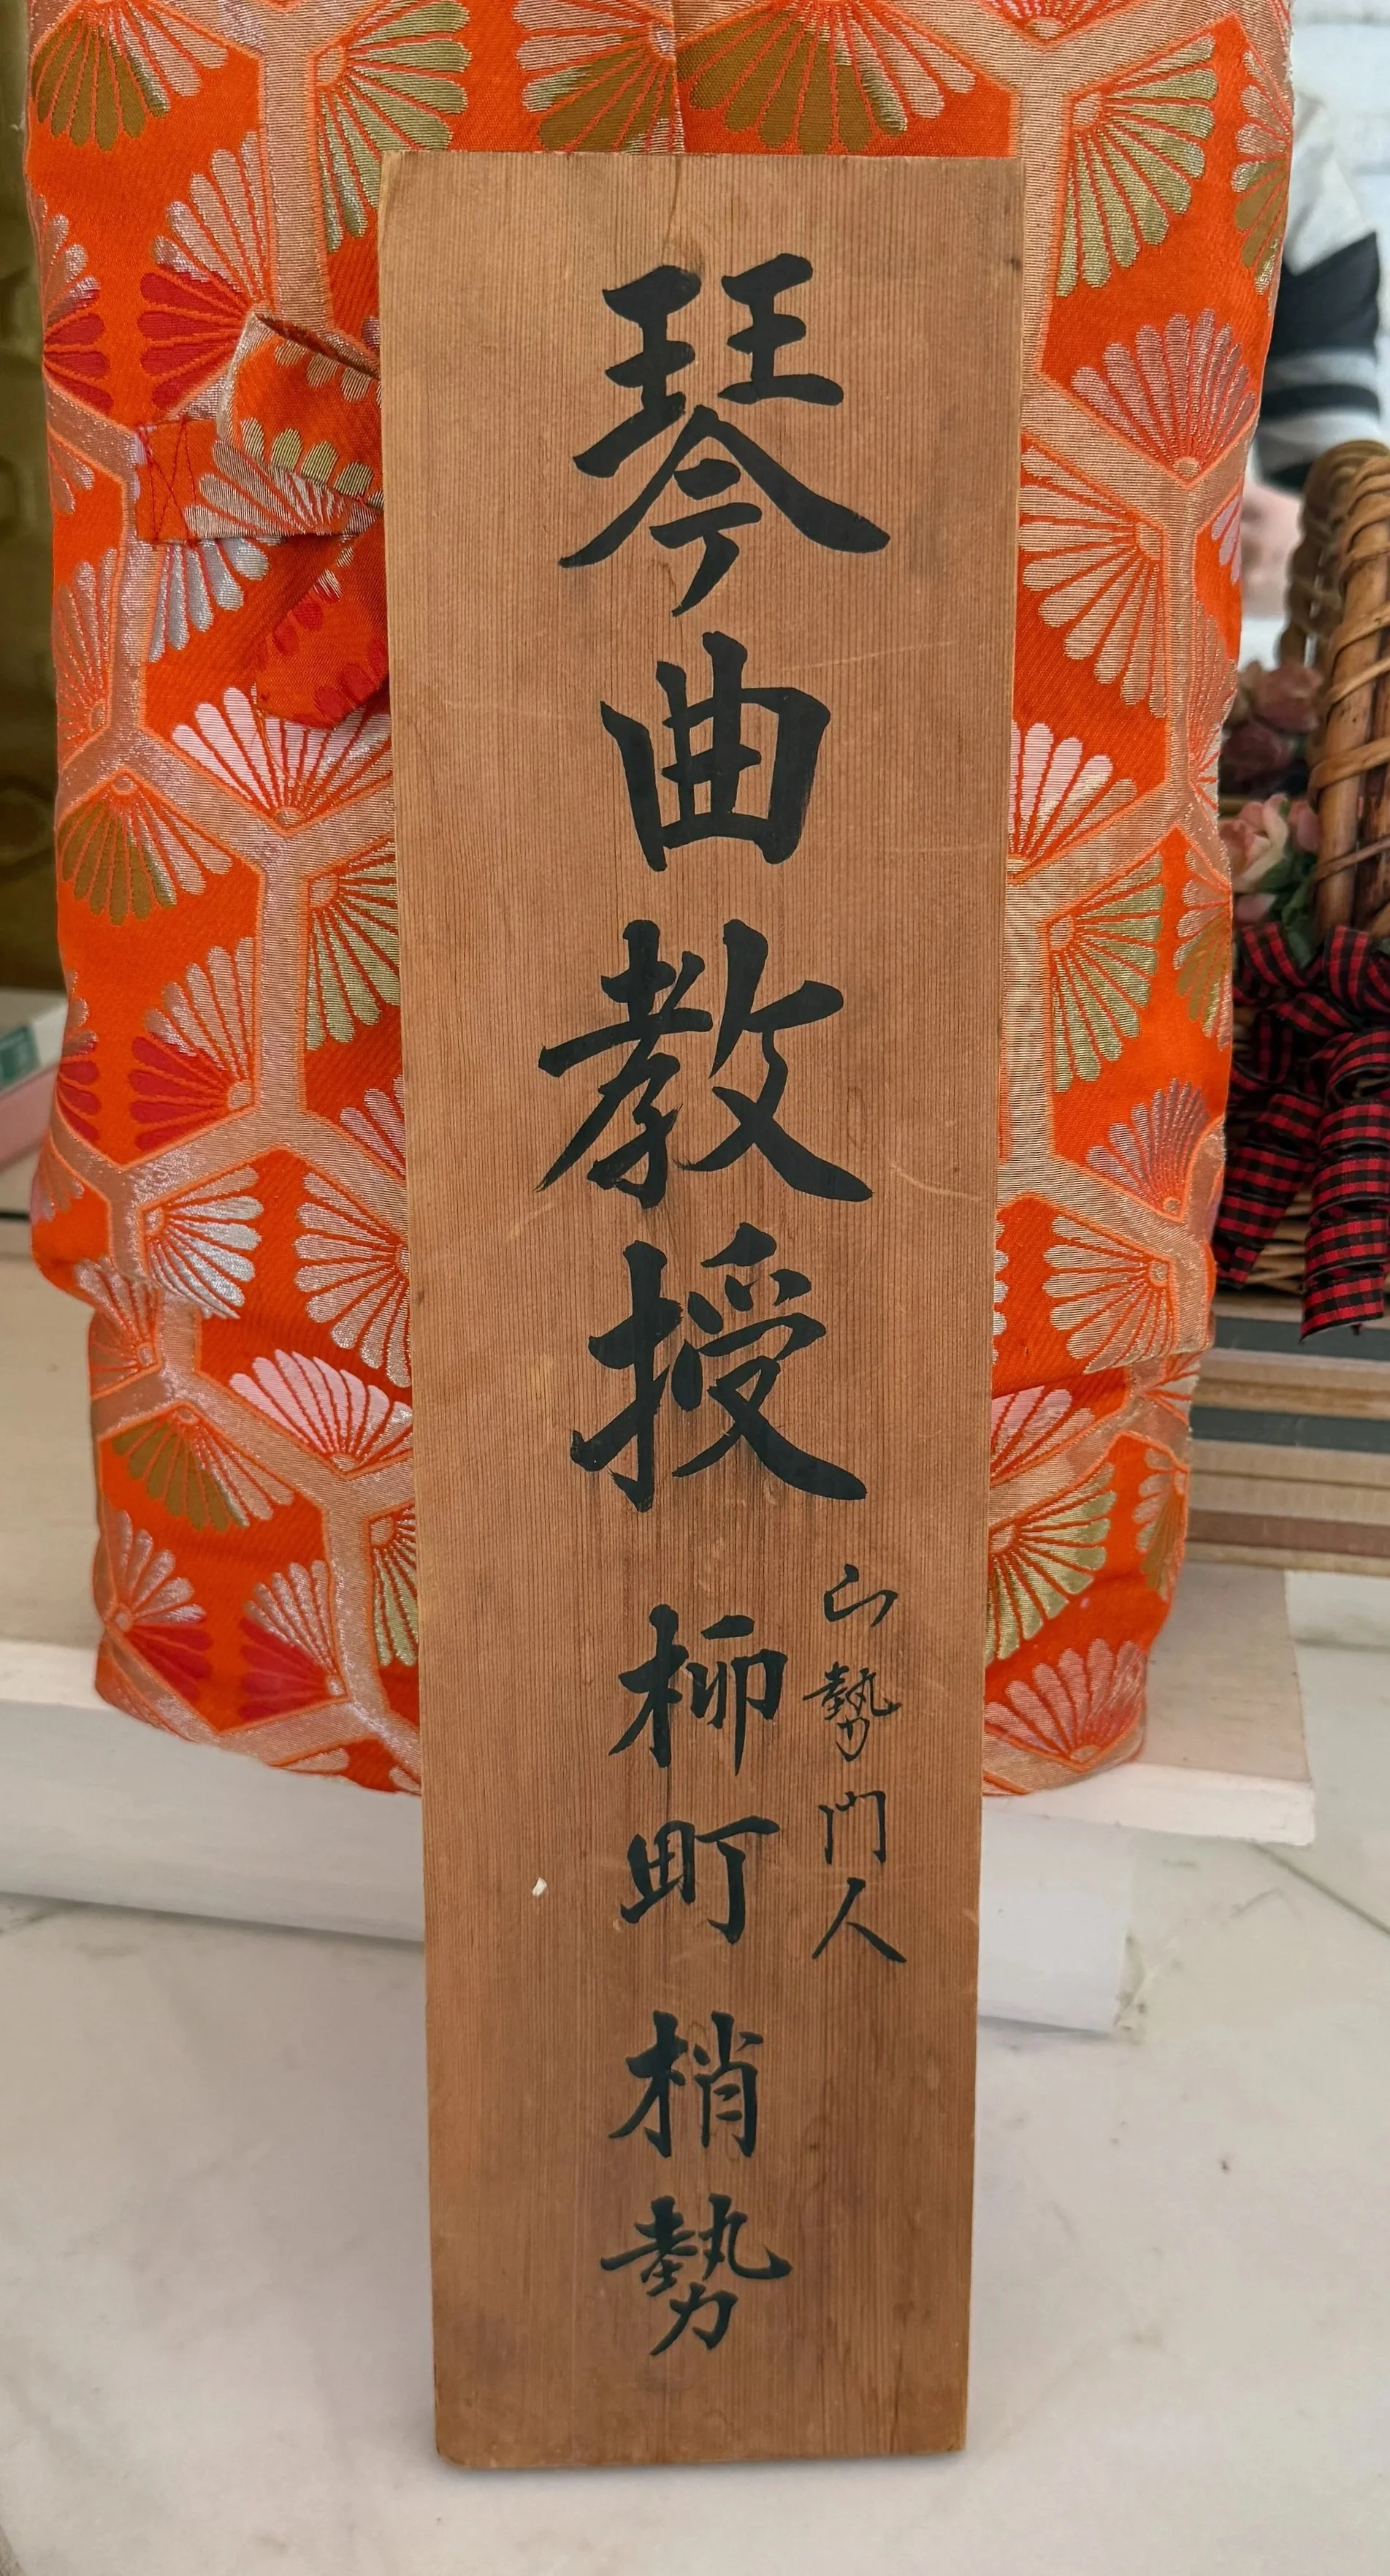 琴曲教授
山勢門人
柳町梢勢